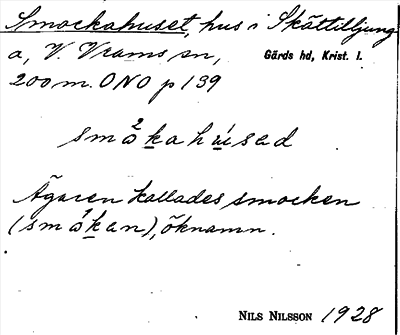 Smockahuset, hus i Skättilljung
a, V. Vrams sn, Gärds hd, Krist. l.
200 m. ONO p 139
småkahúsad
Ägaren kallades smocken
(småkan), öknamn.
NILS NILSSON 1928